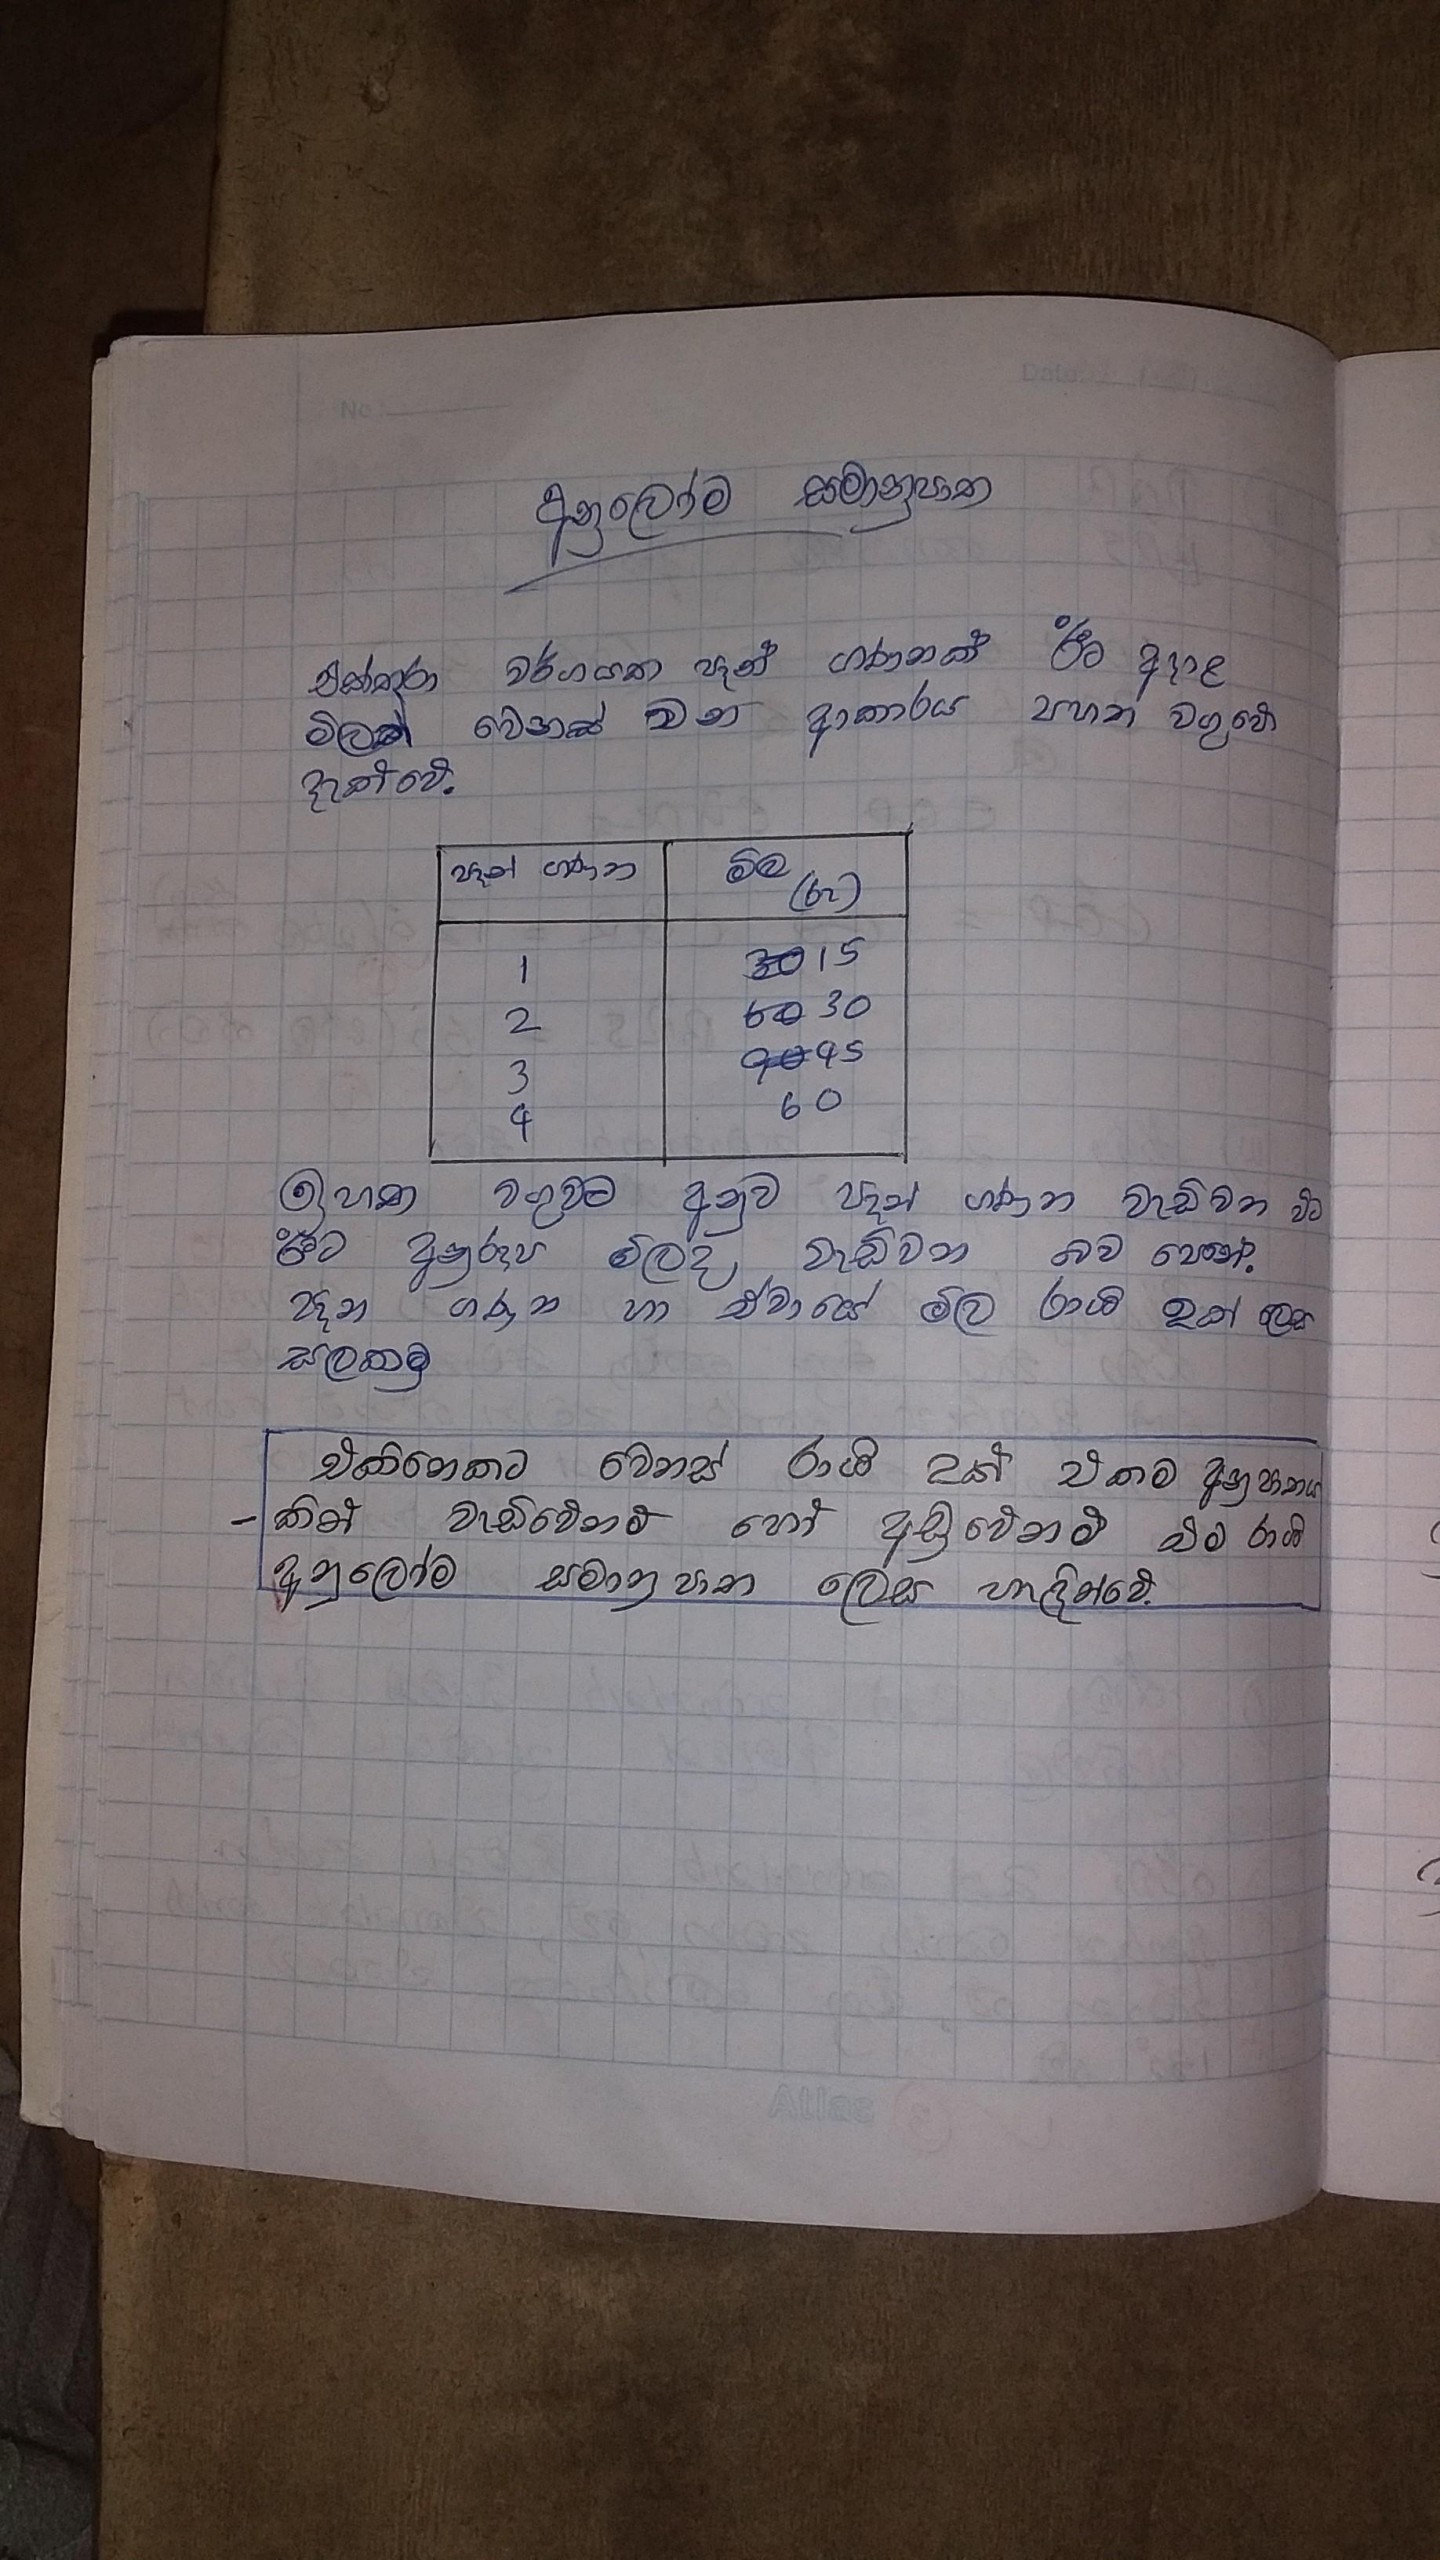 No
Date:
අනුලෝම සමානුපාත
එක්තරා වර්ගයක පෑන් ගණනක් ඊට අදාළ
මිලක් වෙනස් වන ආකාරය පහත වගුවේ
දැක්වේ.
පෑන් ගණන මිල
(රු)
1 30 15
2 60 30
3 90 45
4 60
ඉහත වගුවට අනුව පෑන් ගණන වැඩිවන විට
ඊට අනුරූප මිලද වැඩිවන බව පෙනේ.
පෑන ගණන හා ඒවායේ මිල රාශි 2ක් ලෙස
සලකමු
එකිනෙකට වෙනස් රාශි 2ක් එකම අනුපාතය
- කින් වැඩිවේනම් හෝ අඩුවේනම් එම රාශි
අනුලෝම සමානුපාත ලෙස හැඳින්වේ.
Atlas